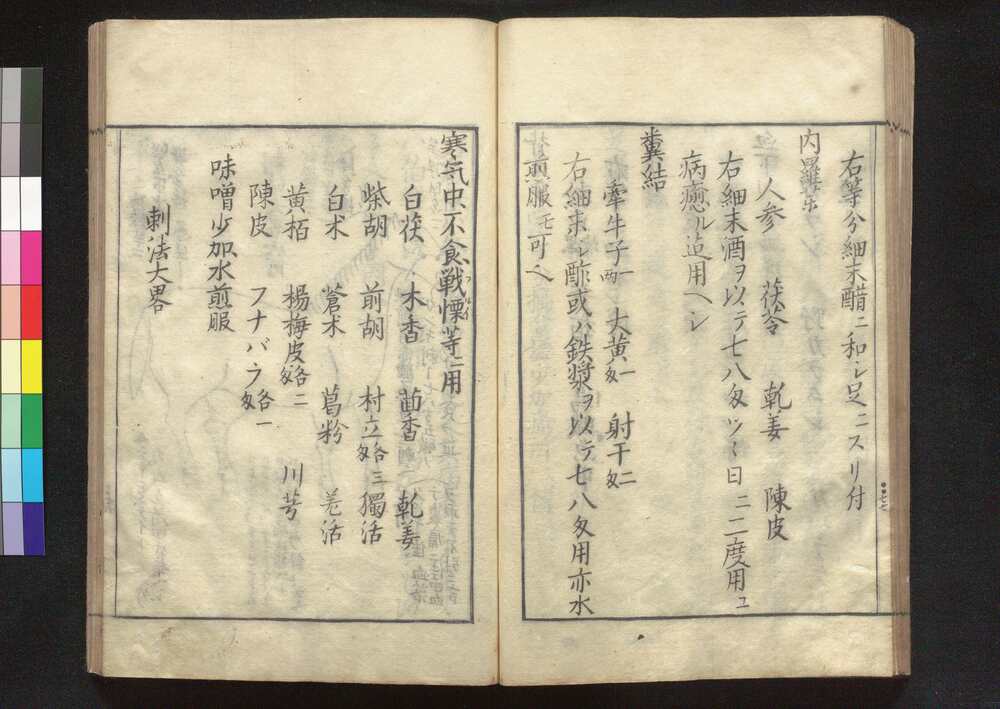 右等分細末醋ニ和シ足ニスリ付
内羅
人参 茯苓 乾姜 陳皮
右細末酒ヲ以テ七八匁ツヽ日ニ二度用ユ
病癒ル迄用ヘシ
糞結
牽牛子一両 大黄一匁 射干二匁
右細末シ酢或ハ鉄漿ヲ以テ七八匁用亦水
煎服モ可ヘ
寒気中不食戦慄等ニ用
白茯 木香 茴香 乾姜
柴胡 前胡 村立各三匁 獨活
白朮 蒼朮 葛粉 羌活
黄栢 楊梅皮各二匁 川芎
陳皮 フナバラ各一匁
味噌少加水煎服
刺法大畧